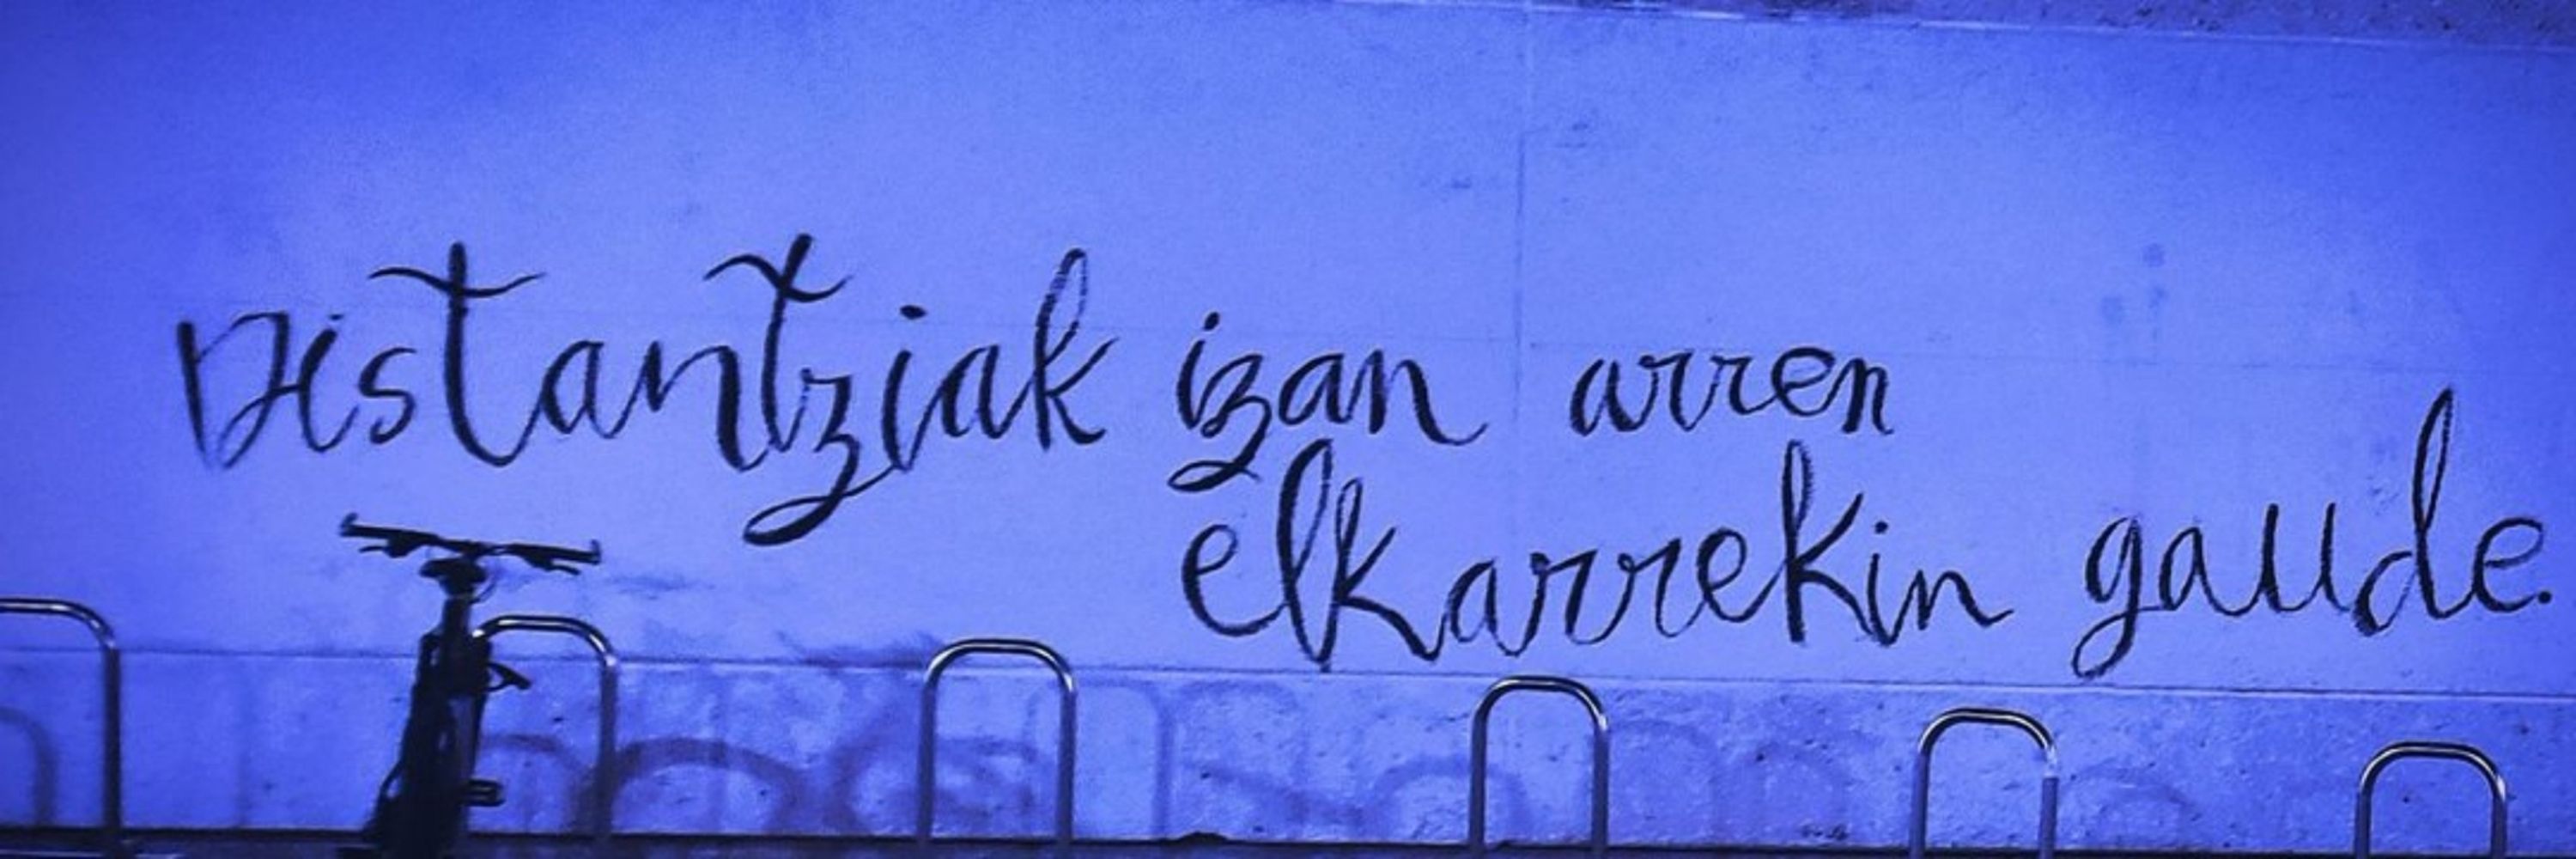 Distantziak izan arren
elkarrekin gaude.